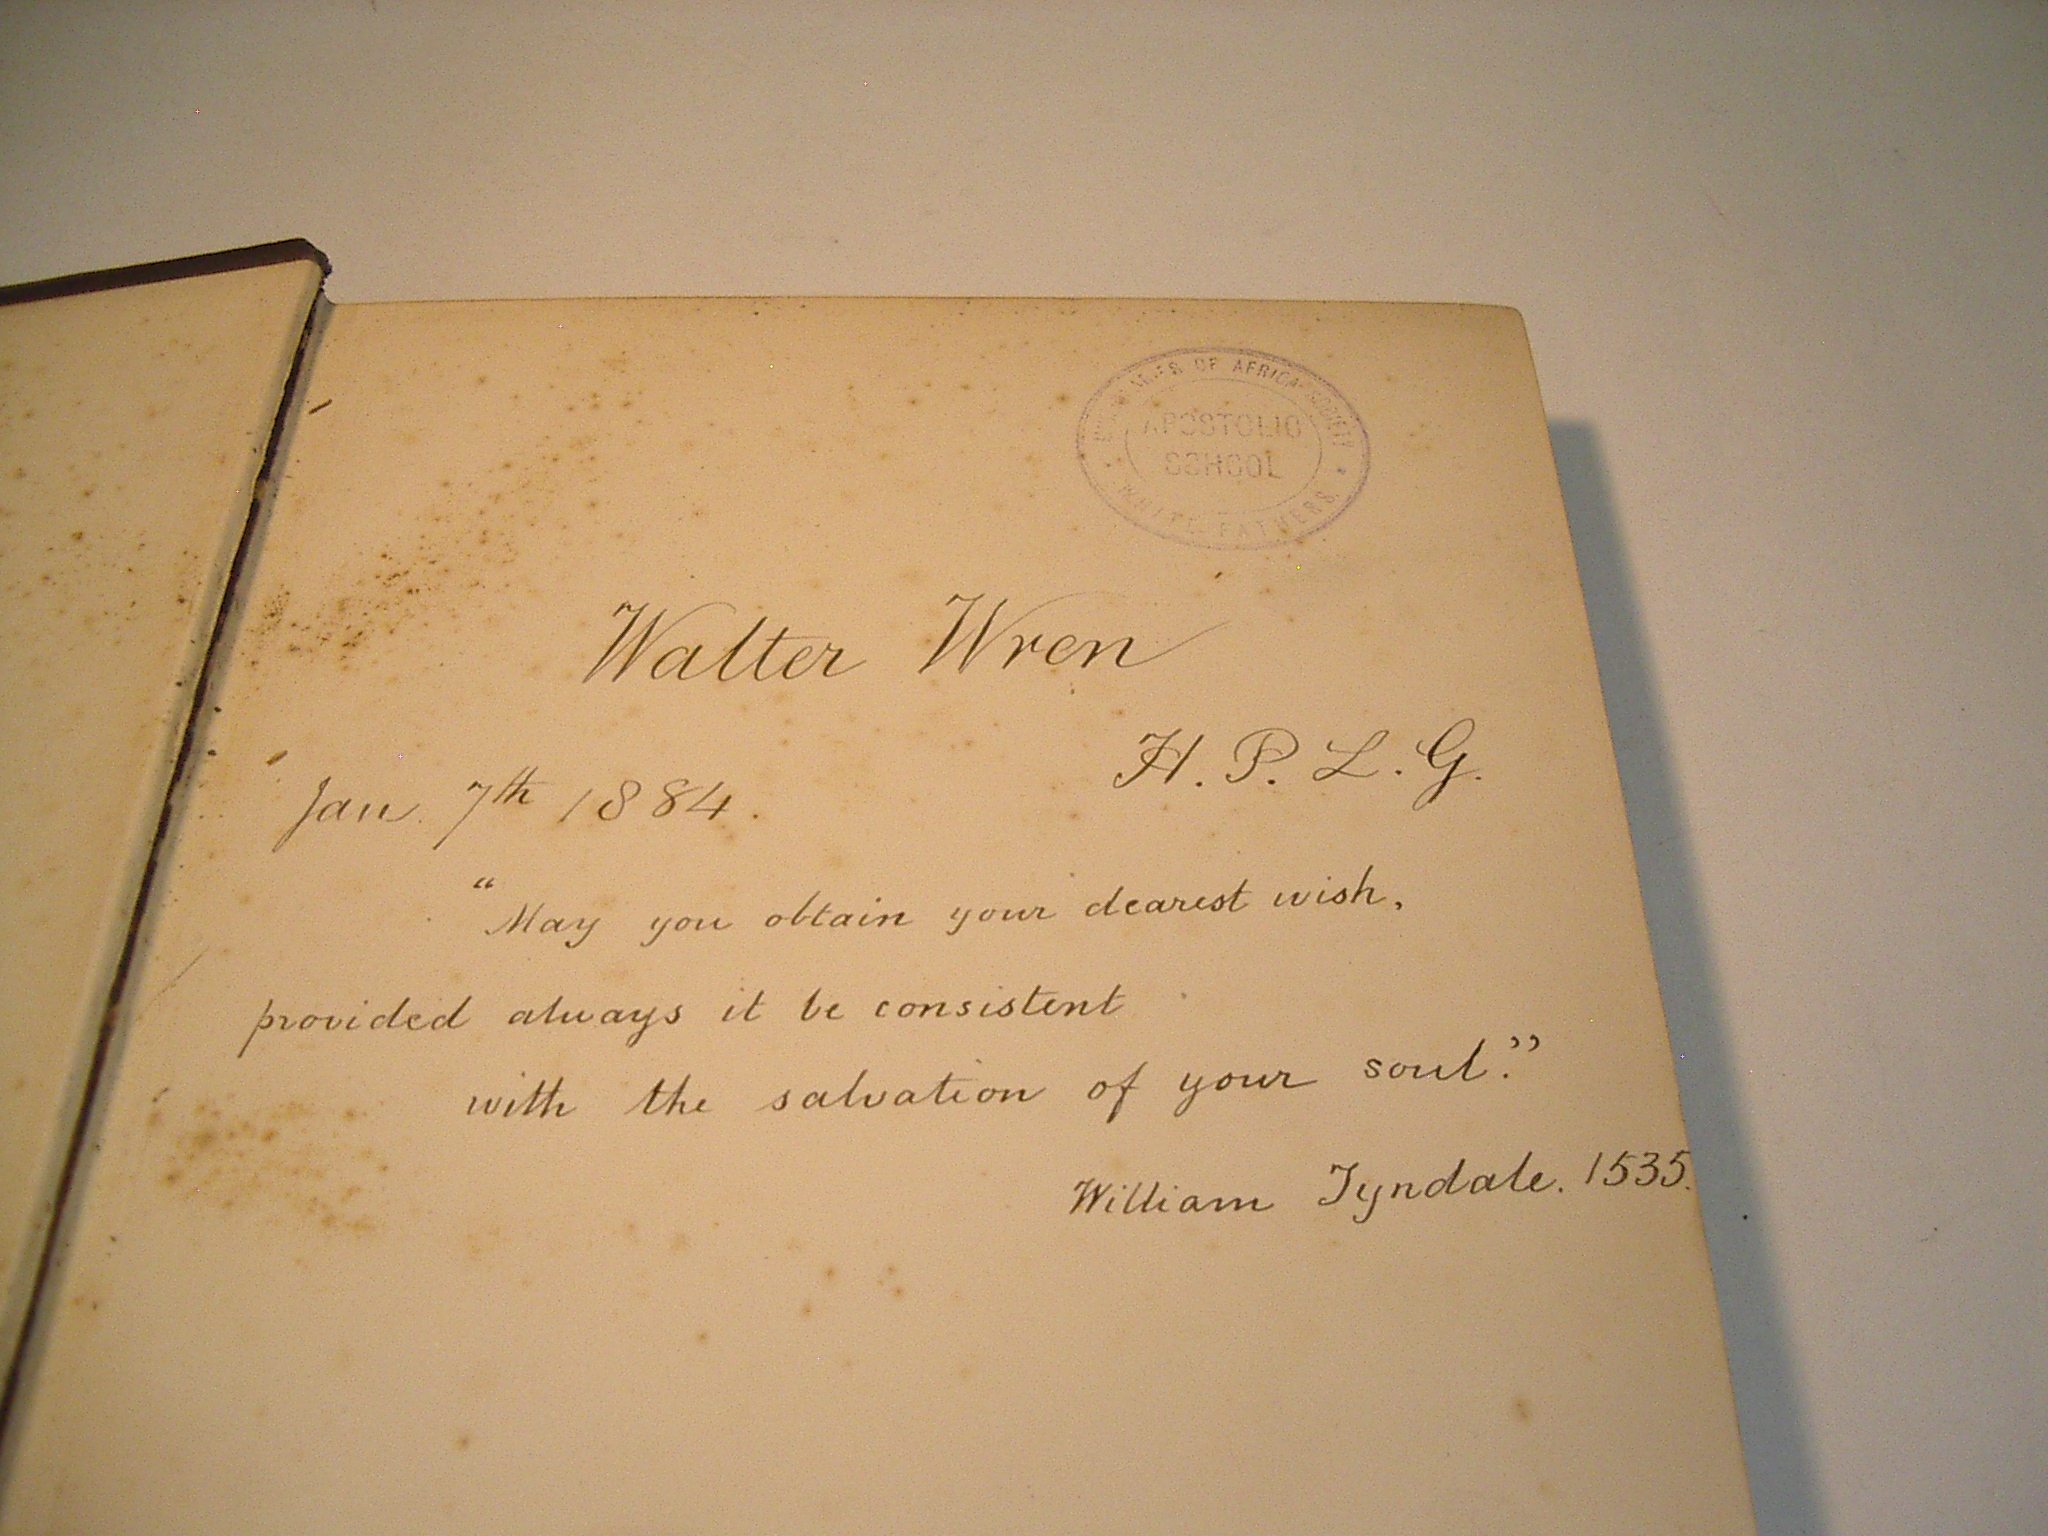 OF AFRICA SOCIETY
APOSTOLIC
SCHOOL
WHITE FATHERS
Walter Wren
H. P. L. G.
Jan. 7th 1884.
"May you obtain your dearest wish,
provided always it be consistent
with the salvation of your soul."
William Tyndale. 1535.